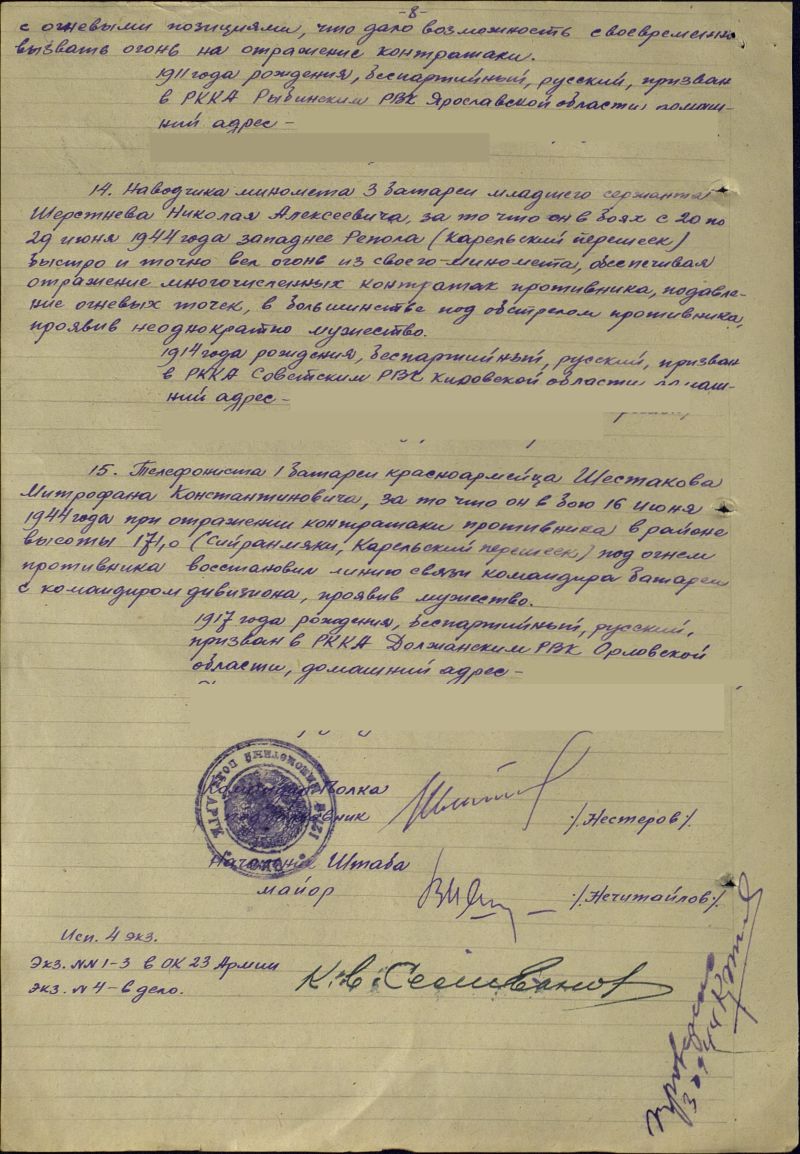 -8-
с огневыми позициями, что дало возможность своевременно
вызвать огонь на отражение контратаки.
1911 года рождения, беспартийный, русский, призван
в РККА Рыбинским РВК Ярославской области, домаш-
ний адрес -
14. Наводчика миномета 3 батареи младшего сержанта
Шерстнева Николая Алексеевича, за то что он в боях с 20 по
29 июня 1944 года западнее Репола (Карельский перешеек)
быстро и точно вел огонь из своего миномета, обеспечивая
отражение многочисленных контратак противника, подавле-
ние огневых точек, в большинстве под обстрелом противника,
проявив неоднократно мужество.
1914 года рождения, беспартийный, русский, призван
в РККА Советским РВК Кировской области,
ний адрес -
15. Телефониста 1 батареи красноармейца Шестакова
Митрофана Константиновича, за то что он в бою 16 июня
1944 года при отражении контратаки противника в районе
высоты 171,0 (Сийранмяки, Карельский перешеек) под огнем
противника восстановил линию связи командира батареи
с командиром дивизиона, проявив мужество.
1917 года рождения, беспартийный, русский,
призван в РККА Должанским РВК Орловской
области, домашний адрес -
Командир Полка
подполковник /Нестеров/.
Начальник Штаба
майор /Нечитайлов/.
Исп. 4 экз.
Экз. NN 1-3 в ОК 23 Армии
экз. N 4 - в дело.
Селиванов